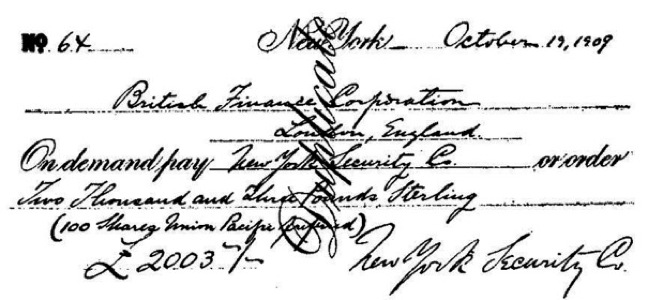 No. 64. New York October 19, 1909
British Finance Corporation
London, England.
On demand pay New York Security Co. or order
Two Thousand and three Pounds Sterling
(100 Shares Union Pacific preferred)
£ 2003 -/-
New York Security Co.
Duplicate